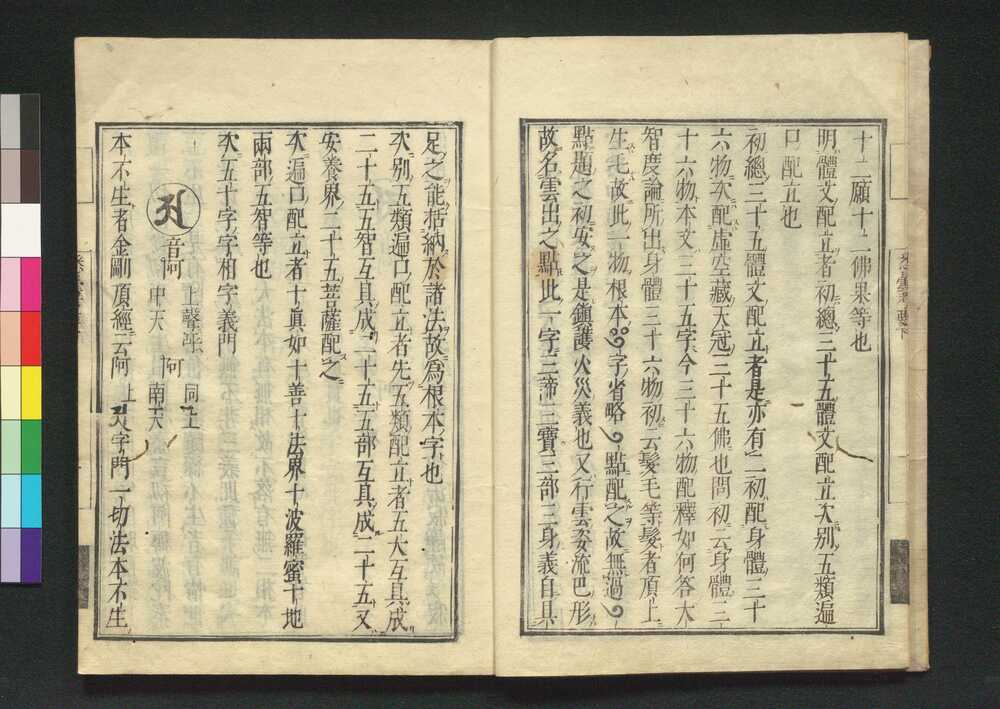 十二願十二佛果等也
明體文配立者初總三十五體文配立次別五類遍
口配立也
初總三十五體文配立者是亦有二初配身體三十
六物次配虛空藏天冠三十五佛也問初云身體三
十六物本文三十五字今三十六物配釋如何答大
智度論所出身體三十六物初云髮毛等髮者頂上
生毛故此一物根本字省略點配之故無過
點題之初安之是鎮護火災義也又行雲委流巴形
故名雲出之點此一字三諦三寶三部三身義自具
足之能括納於諸法故爲根本字也
次別五類遍口配立者先五類配立者五大互具成
二十五五智互具成二十五五部互具成二十五又
安養界二十五菩薩配之
次遍口配立者十眞如十善十法界十波羅蜜十地
兩部五智等也
次五十字字相字義門
𑖀 音阿 上聲呼 中天 阿 同上 南天
本不生者金剛頂經云阿上𑖀字門一切法本不生